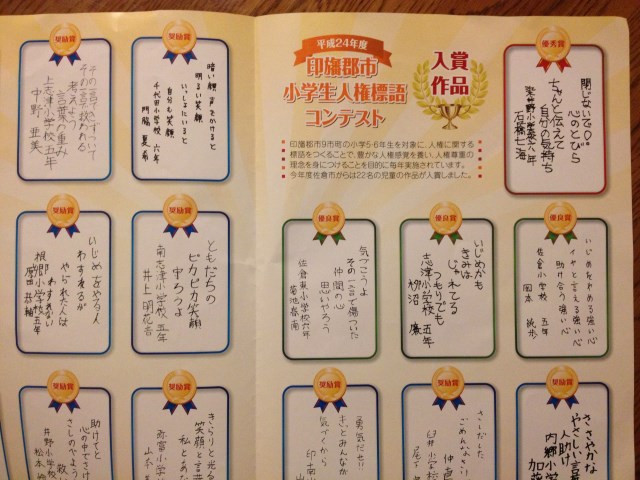 平成24年度
印旛郡市
小学生人権標語
コンテスト
入賞
作品
印旛郡市9市町の小学5・6年生を対象に、人権に関する
標語をつくることで、豊かな人権感覚を養い、人権尊重の
理念を身につけることを目的に毎年実施されています。
今年度佐倉市からは22名の児童の作品が入賞しました。
優秀賞
閉じないで。
心のとびら
ちゃんと伝えて
自分の気持ち
小学校 六年
石橋 七海
優良賞
いじめをやめる強い心
イヤと言える強い心
助け合う強い心
佐倉小学校 五年
岡本
優良賞
いじめかも
きみは
じゃれてる
つもりでも
志津小学校 五年
柳沼
優良賞
気づこうよ
その一言で傷ついた
仲間の心
思いやろう
佐倉東小学校 六年
菊池 春南
奨励賞
暗い顔 声をかけると
明るい笑顔
いっしょにいると
自分も笑顔
千代田小学校 六年
門脇 夏希
奨励賞
その言葉の重み
考えて
上志津小学校 五年
中野 亜美
奨励賞
ともだちの
ピカピカ笑顔
守ろうよ
南志津小学校 五年
井上 明花音
奨励賞
いじめをやる人
わすれるが
やられた人は
わすれない
根郷小学校 五年
奨励賞
ささやかな
やさしい言葉
人助け
内郷小学校
加藤
奨励賞
さしだした
ごめんなさい
仲直
臼井小学校
奨励賞
勇気だせ!!
きっとみんなか
気づくから
印南小
奨励賞
きらりと光る
笑顔と言葉
私とあな
弥富小学校
山本
奨励賞
助けてと
心の中でさけ
さしのべよう
救い
井野小学校
松本